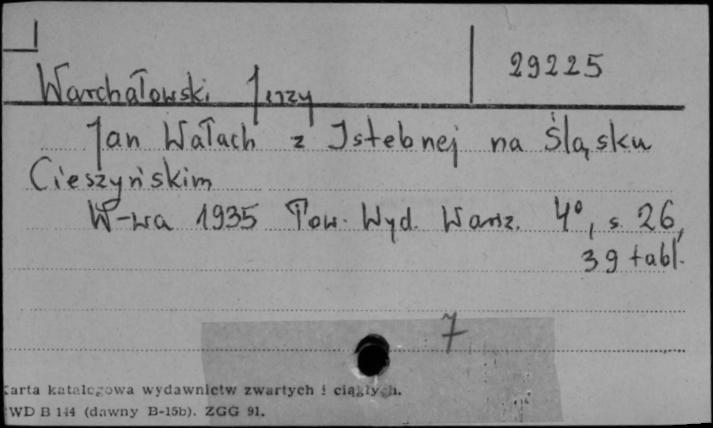 29225
Warchałowski Jerzy
Jan Wałach z Istebnej na Śląsku
Cieszyńskim
W-wa 1935 Tow. Wyd. Warsz. 4°, s. 26,
39 tabl.
7
Karta katalogowa wydawnictw zwartych i ciągłych.
WD B 144 (dawny B-15b). ZGG 91.